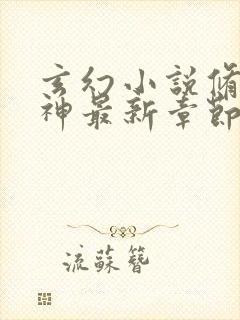 玄幻小説脩
神最新章節
流蘇簪